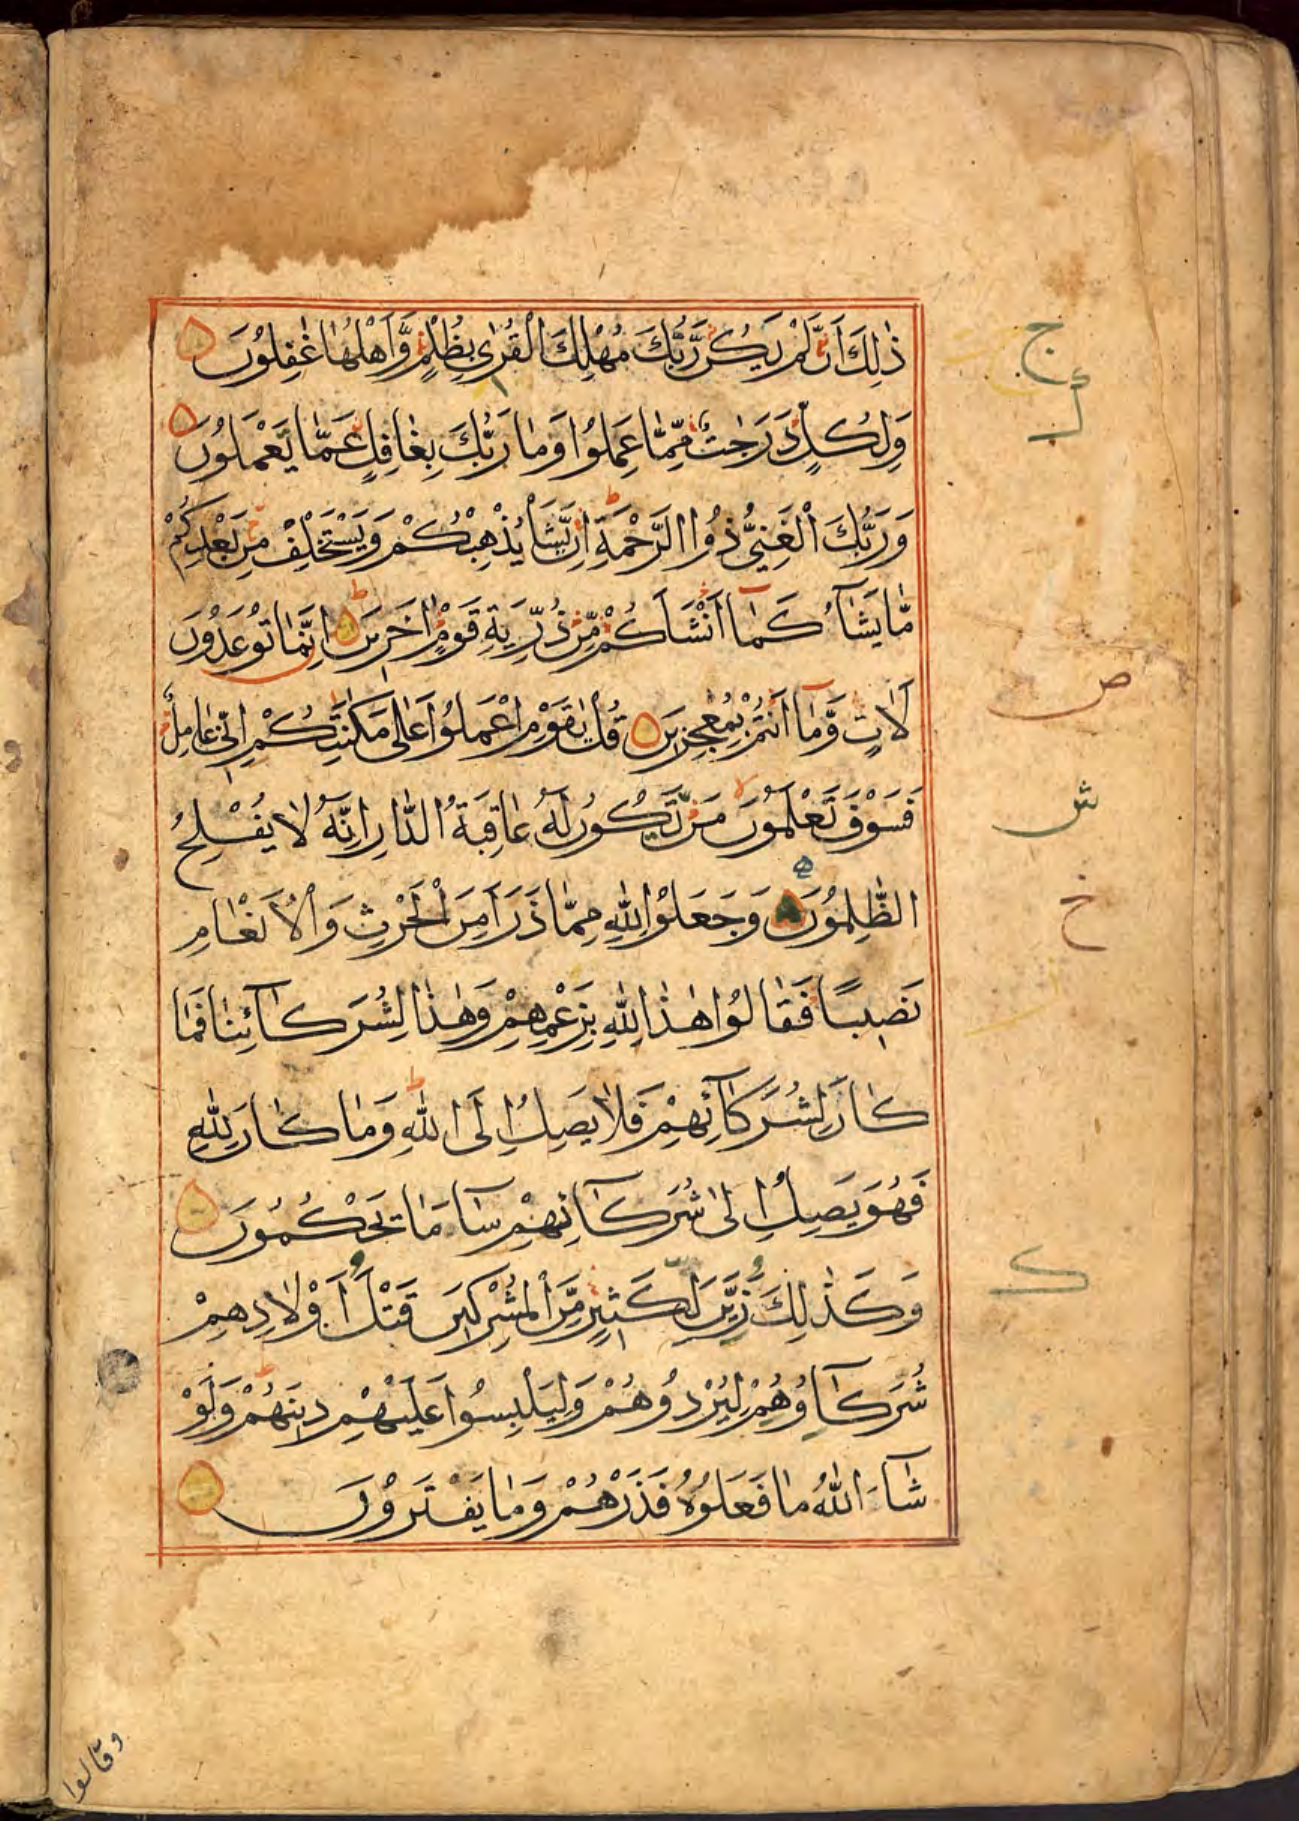 ذٰلِكَ اَنْ لَّمْ يَكُنْ رَّبُّكَ مُهْلِكَ الْقُرٰى بِظُلْمٍ وَّاَهْلُهَا غٰفِلُوْنَ
وَلِكُلٍّ دَرَجٰتٌ مِّمَّا عَمِلُوْا وَمَا رَبُّكَ بِغَافِلٍ عَمَّا يَعْمَلُوْنَ
وَرَبُّكَ الْغَنِيُّ ذُوا الرَّحْمَةِ اِنْ يَّشَأْ يُذْهِبْكُمْ وَيَسْتَخْلِفْ مِنْ بَعْدِكُمْ
مَّا يَشَآءُ كَمَآ اَنْشَاَكُمْ مِّنْ ذُرِّيَةِ قَوْمٍ اٰخَرِيْنَ اِنَّمَا تُوْعَدُوْنَ
لَاٰتٍ وَّمَآ اَنْتُمْ بِمُعْجِزِيْنَ قُلْ يٰقَوْمِ اعْمَلُوْا عَلٰى مَكَانَتِكُمْ اِنِّيْ عَامِلٌ
فَسَوْفَ تَعْلَمُوْنَ مَنْ تَكُوْنُ لَهٗ عَاقِبَةُ الدَّارِ اِنَّهٗ لَا يُفْلِحُ
الظّٰلِمُوْنَ وَجَعَلُوْا لِلّٰهِ مِمَّا ذَرَاَ مِنَ الْحَرْثِ وَالْاَنْعَامِ
نَصِيْبًا فَقَالُوْا هٰذَا لِلّٰهِ بِزَعْمِهِمْ وَهٰذَا لِشُرَكَآئِنَا فَمَا
كَانَ لِشُرَكَآئِهِمْ فَلَا يَصِلُ اِلَى اللّٰهِ وَمَا كَانَ لِلّٰهِ
فَهُوَ يَصِلُ اِلٰى شُرَكَآئِهِمْ سَآءَ مَا يَحْكُمُوْنَ
وَكَذٰلِكَ زَيَّنَ لِكَثِيْرٍ مِّنَ الْمُشْرِكِيْنَ قَتْلَ اَوْلَادِهِمْ
شُرَكَآؤُهُمْ لِيُرْدُوْهُمْ وَلِيَلْبِسُوْا عَلَيْهِمْ دِيْنَهُمْ وَلَوْ
شَآءَ اللّٰهُ مَا فَعَلُوْهُ فَذَرْهُمْ وَمَا يَفْتَرُوْنَ
ج
ص
ش
خ
ك
وقالوا